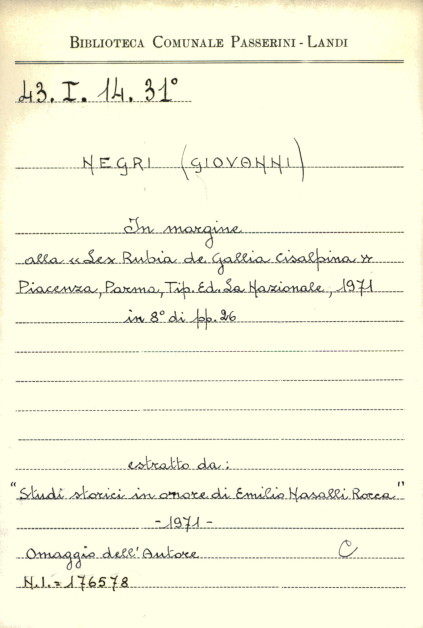 BIBLIOTECA COMUNALE PASSERINI - LANDI
43. I. 14. 31°
NEGRI (GIOVANNI)
In margine
alla «Lex Rubia de Gallia Cisalpina»
Piacenza, Parma, Tip. Ed. La Nazionale, 1971
in 8° di pp. 26
estratto da:
"Studi storici in onore di Emilio Nasalli Rocca"
-1971-
Omaggio dell'Autore C
N.I.= 176578